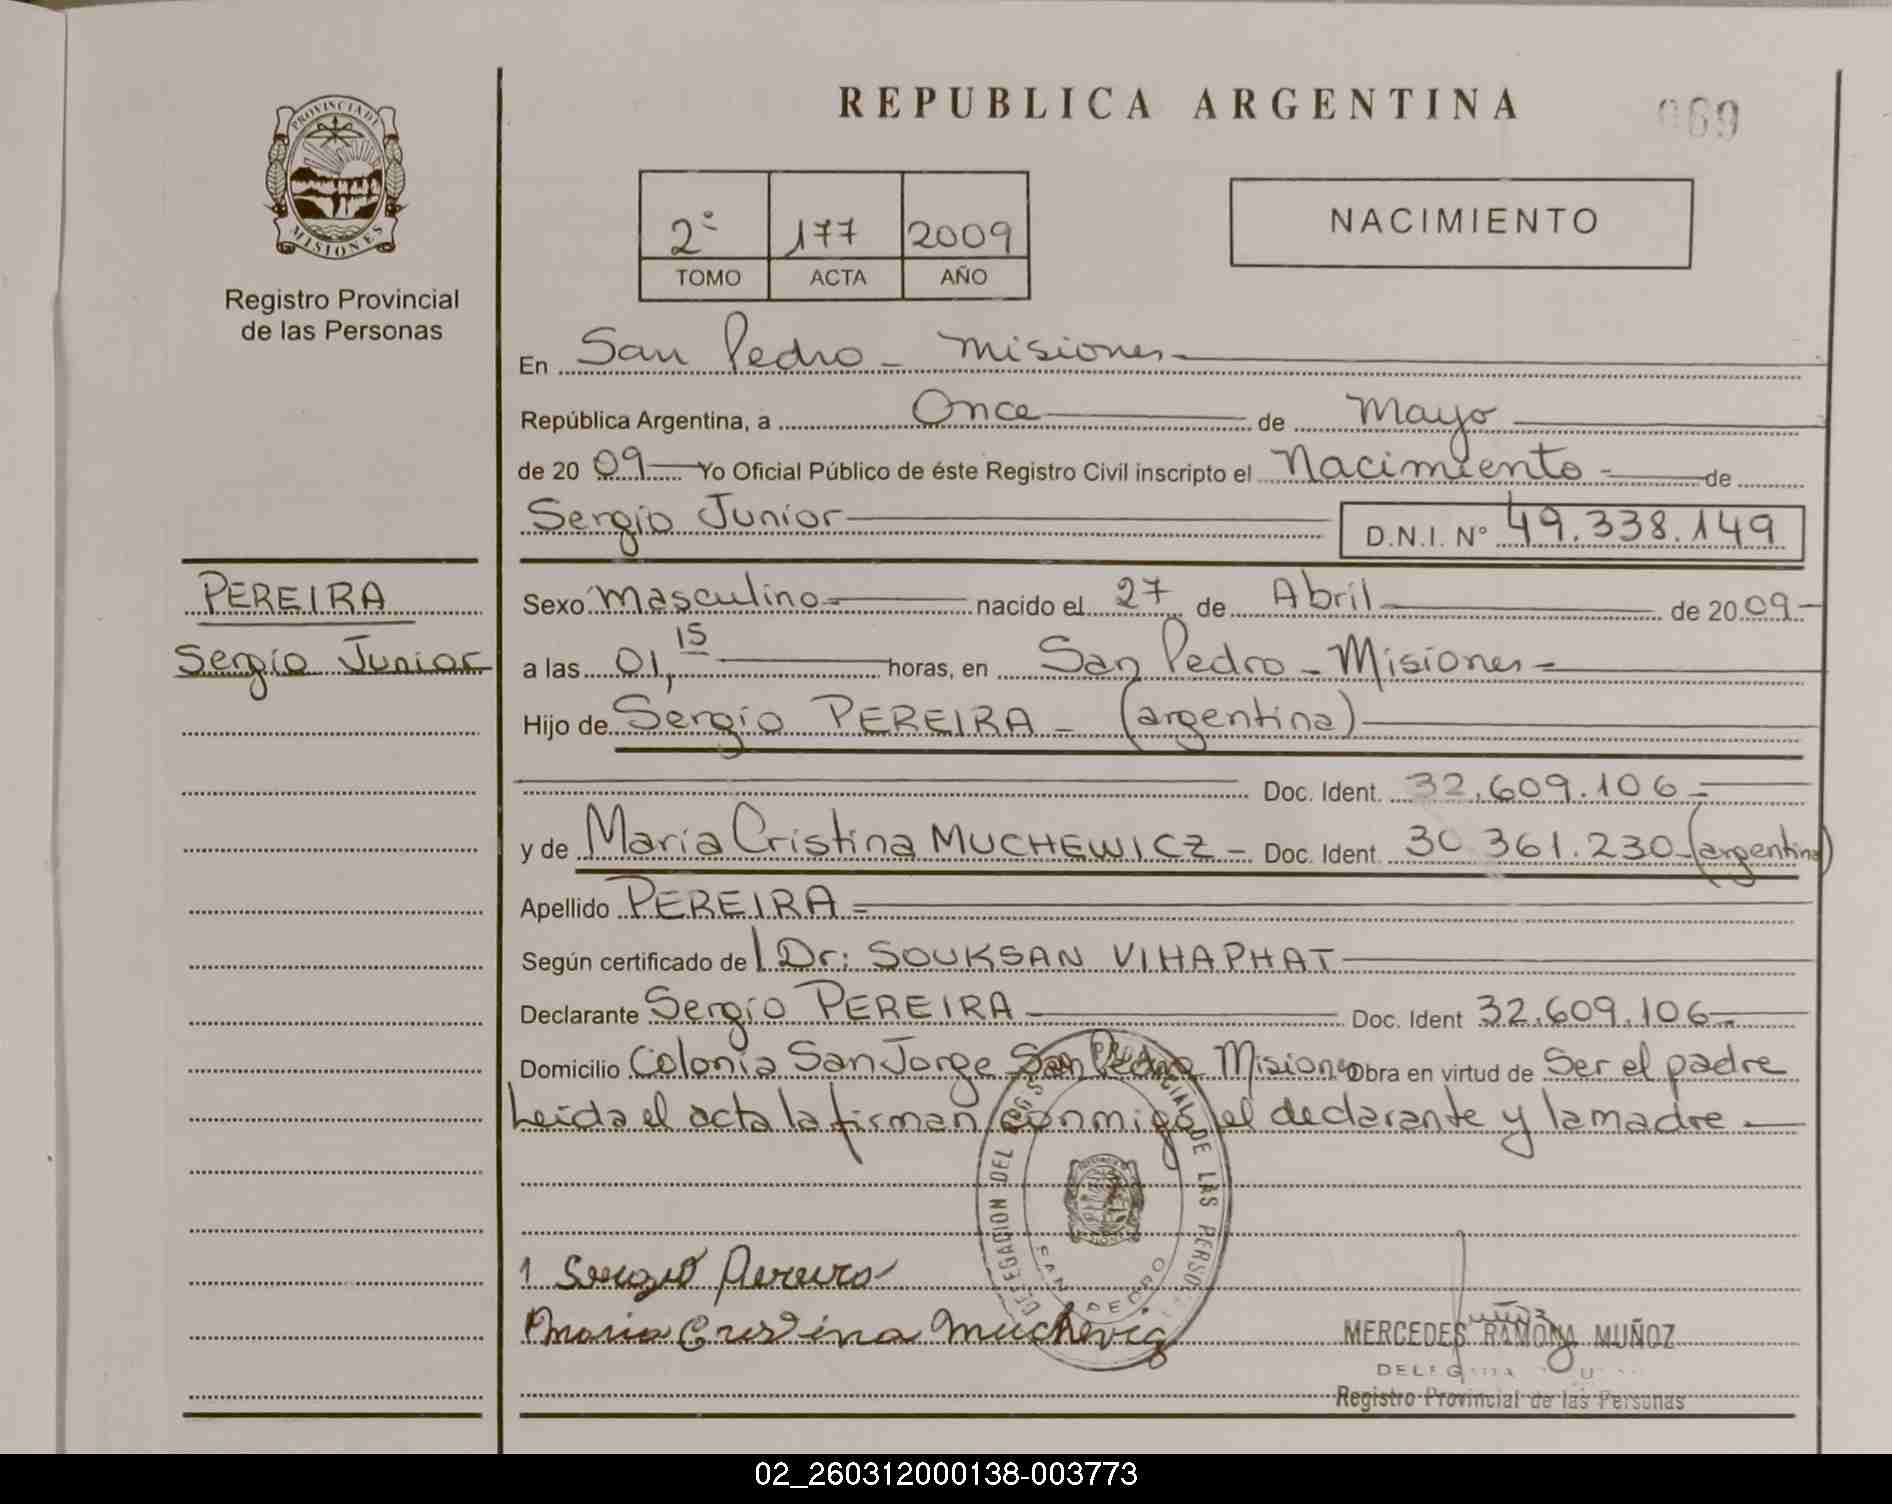 REPUBLICA ARGENTINA
069
PROVINCIA DE
MISIONES
Registro Provincial
de las Personas
2º 177 2009
TOMO ACTA AÑO
NACIMIENTO
En San Pedro - Misiones
República Argentina, a Once de Mayo
de 20 09 Yo Oficial Público de éste Registro Civil inscripto el Nacimiento de
Sergio Junior D.N.I. Nº 49.338.149
PEREIRA
Sergio Junior
Sexo Masculino nacido el 27 de Abril de 20 09
a las 01,15 horas, en San Pedro - Misiones
Hijo de Sergio PEREIRA - (argentina)
Doc. Ident. 32.609.106
y de Maria Cristina MUCHEWICZ - Doc. Ident. 30 361.230 (argentina)
Apellido PEREIRA
Según certificado de Dr: SOUKSAN VIHAPHAT
Declarante Sergio PEREIRA Doc. Ident 32.609.106
Domicilio Colonia San Jorge San Pedro Misiones Obra en virtud de Ser el padre
Leida el acta la firman conmigo el declarante y la madre
DELEGACION DEL PROVINCIAL DE LAS
SAN PEDRO
1 Sergio Pereira
Maria Cristina
MERCEDES RAMONA MUÑOZ
Registro Provincial de las Personas
02_260312000138-003773